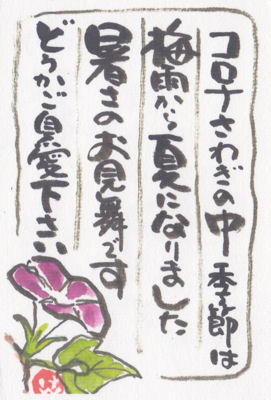 コロナさわぎの中季節は
梅雨から夏になりました
暑さのお見舞です
どうかご自愛下さい